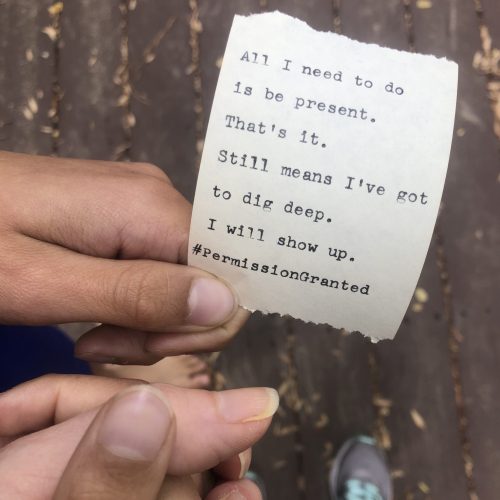 All I need to do
is be present.
That's it.
Still means I've got
to dig deep.
I will show up.
#PermissionGranted